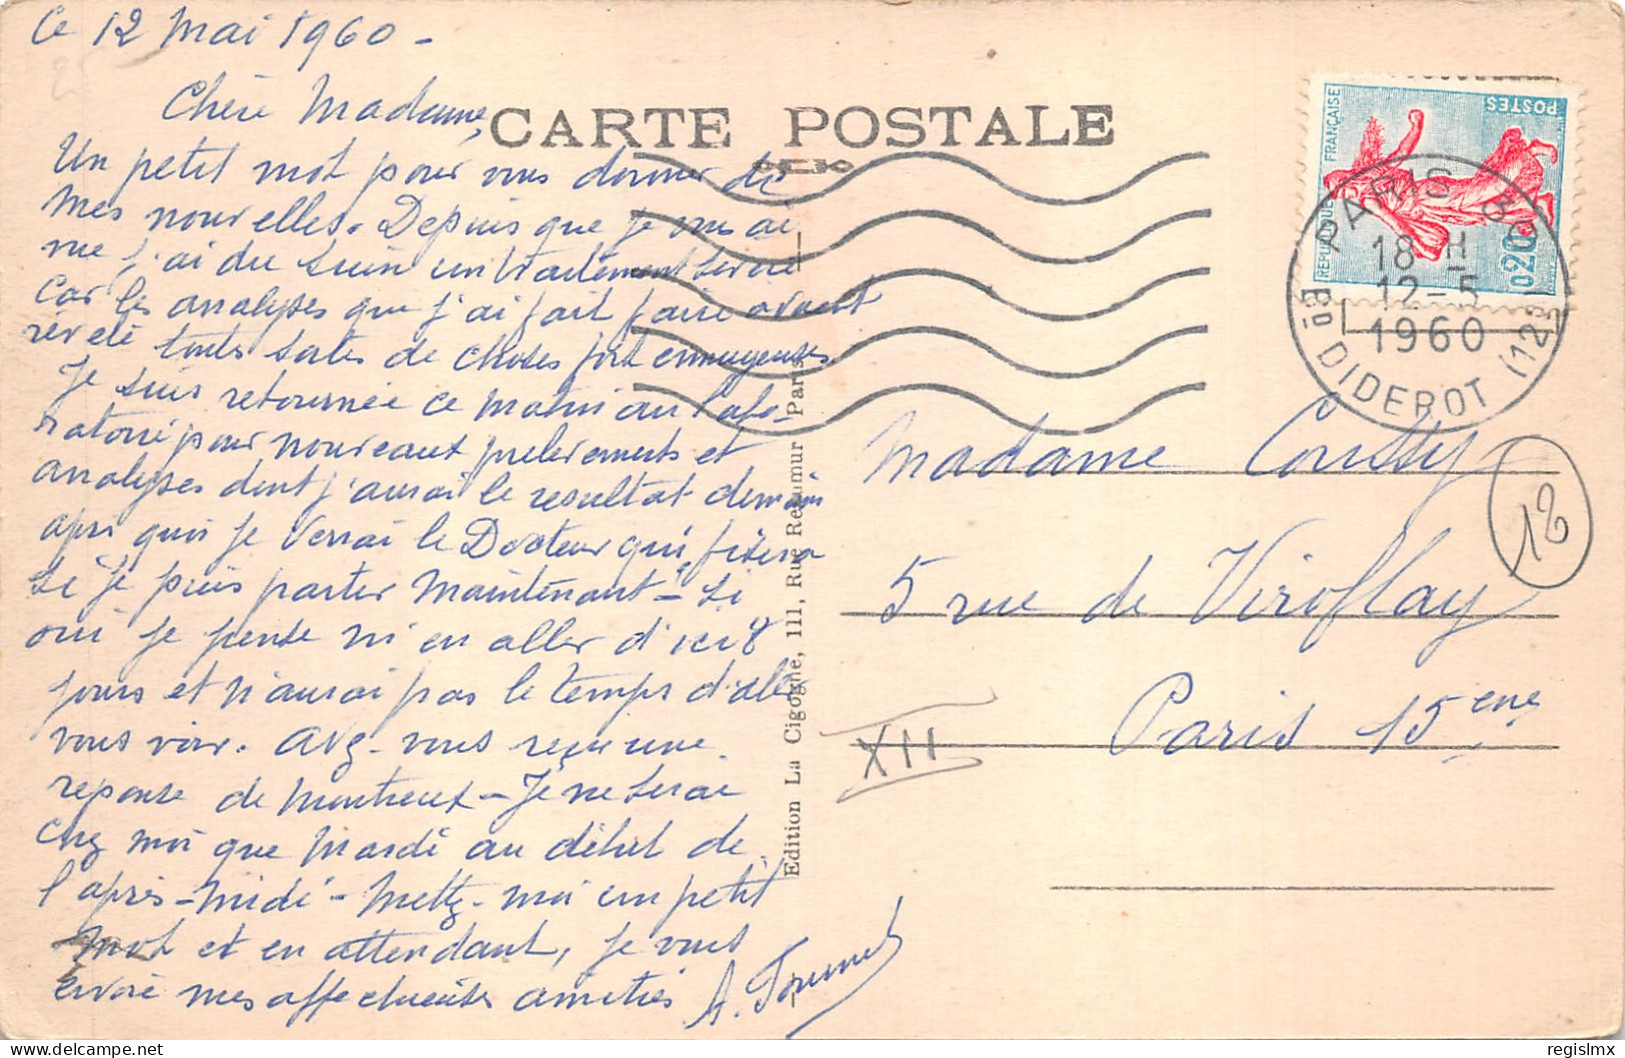 Ce 12 Mai 1960 -
Chère Madame,
Un petit mot pour vous donner de
mes nouvelles. Depuis que je vous ai
vue j'ai du suivre un traitement serré
car les analyses que j'ai fait faire avaient
révélé toutes sortes de choses fort ennuyeuses.
Je suis retournée ce matin au labo-
ratoire pour nouveaux prelevements et
analyses dont j'aurai le resultat demain
après quoi je verrai le Docteur qui fixera
si je puis partir maintenant - Si
oui je pense m'en aller d'ici 8
jours et n'aurai pas le temps d'aller
vous voir. Avez-vous reçu une
reponse de Montreux - Je ne serai
chez moi que Mardi au début de
l'après-midi - Mettez-moi un petit
mot et en attendant, je vous
envoie mes affectueuses amitiés
CARTE POSTALE
Edition La Cigogne, 111, Rue Réaumur Paris
REPUBLIQUE FRANÇAISE
POSTES
0,20
PARIS
18 H
12-5
1960
Bd DIDEROT (12e)
Madame
5 rue de Viroflay
Paris 15eme
12
XII
regislmx